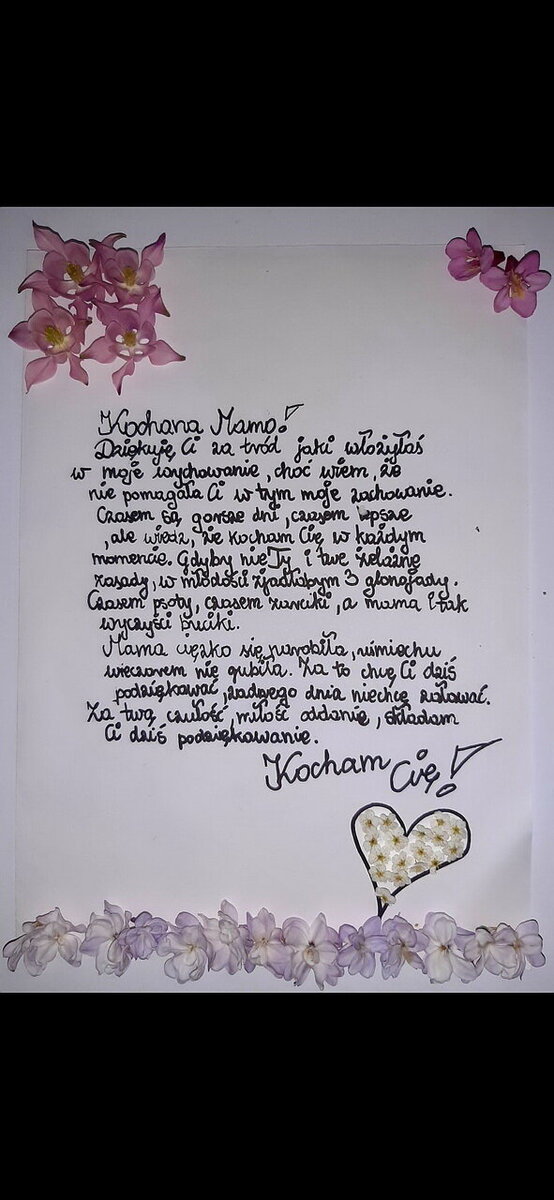 Kochana Mamo!
Dziękuję Ci za tród jaki włożyłaś
w moje wychowanie, choć wiem, że
nie pomagała Ci w tym moje zachowanie.
Czasem są gorsze dni, czasem lepsze
, ale wiedz, że Kocham Cię w każdym
momencie. Gdyby nie Ty i twe żelazne
zasady, w młodości zjadłabym 3 glonojady.
Czasem psoty, czasem żarciki, a mama i tak
wyczyści buciki.
Mama ciężko się narobiła, uśmiechu
wieczorem nie gubiła. Za to chcę Ci dziś
podziękować, żadnego dnia niechcę żałować.
Za twą czułość, miłość oddanie, składam
Ci dziś podziękowanie.
Kocham Cię!